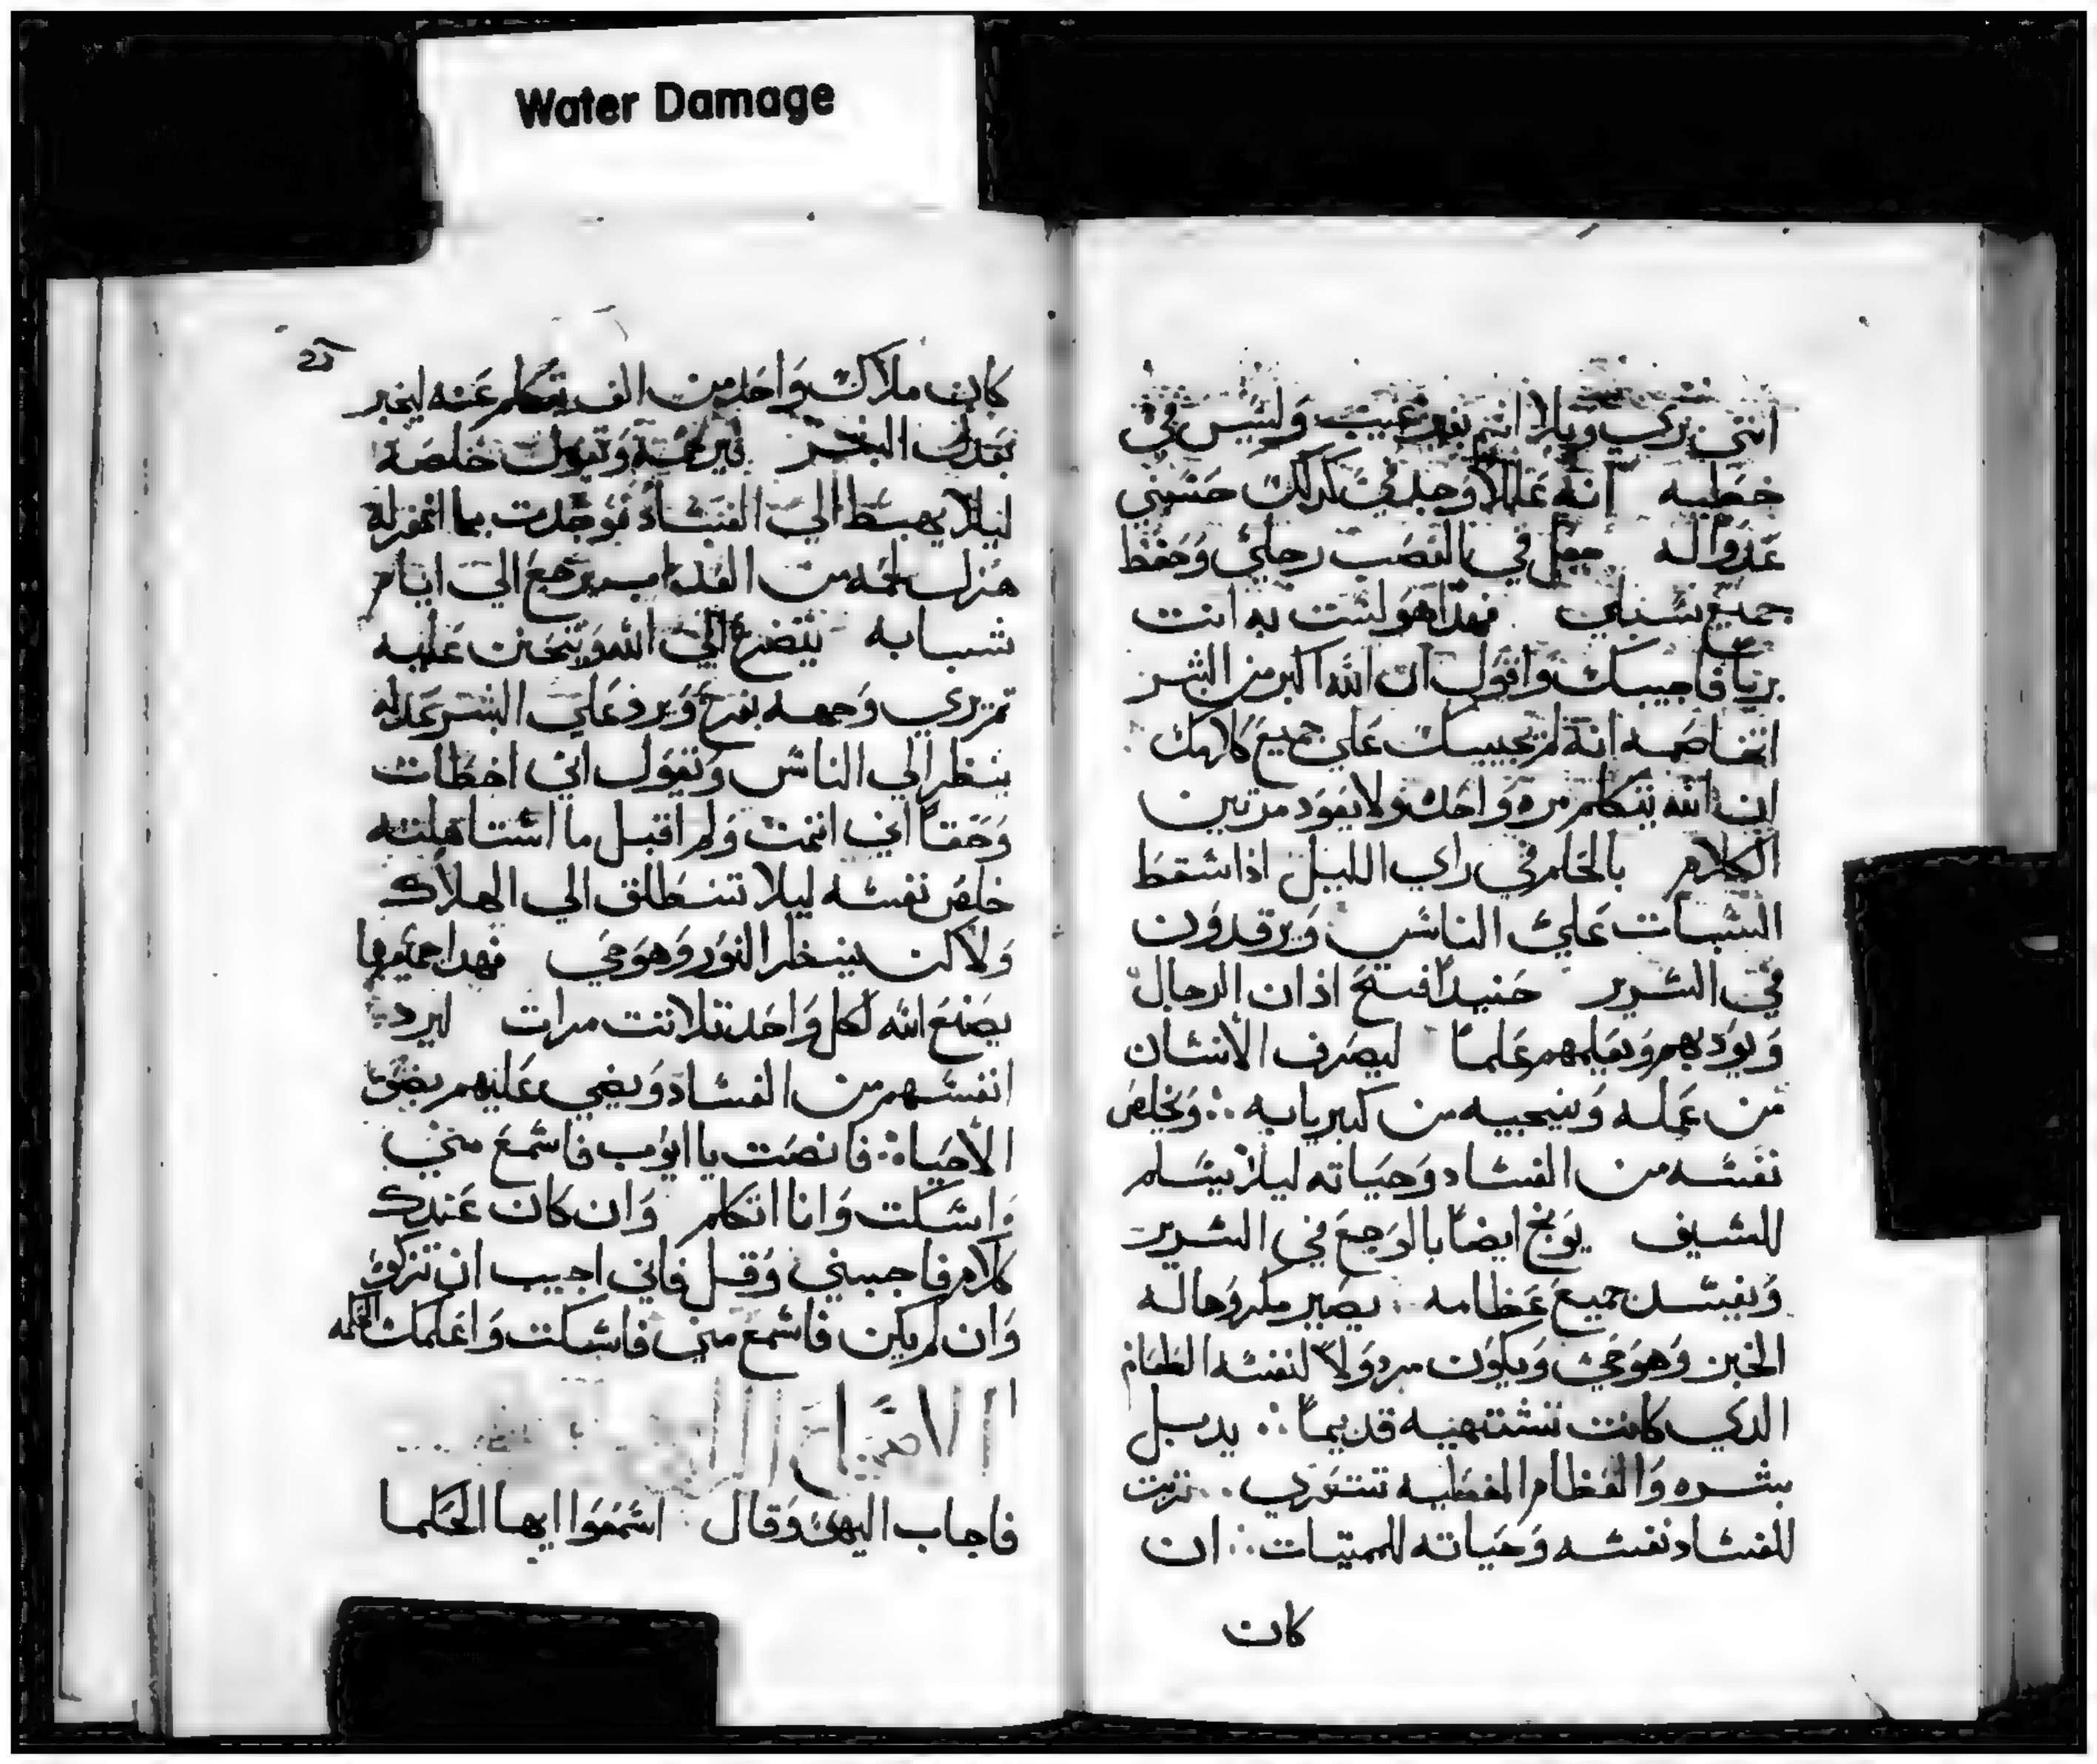 Water Damage
انني بري وبلا اثم بغير عيب وليس في
خطيه انه عللاً وجد في كدلك حسبني
عدوا له جعل في المقصب رجلي وحفظ
جميع سبلي فهدا هو لست به انت
برياً فاجيبك واقول ان الله اكبر من البشر
اتخاصمه انه لم يجيبك علي جميع كلامك
ان الله يتكلم مره واحده ولا يعود مرتين
الكلام بالحلم في راي الليل ادا سقط
السبات علي الناس ويرقدون
في السرير حنيداً افتح اذان الرجال
ويودبهم ويعلمهم علماً ليصرف الانسان
من عمله وينجيه من كبريايه ويخلص
نفسه من الفساد وحياته ليلا يسلم
للسيف يوبخ ايضاً بالوجع في السرير
ويفسد جميع عظامه يصير مكروها له
الخبز وهو حي ويكون مردولاً لنفسه الطعام
الدي كانت تشتهيه قديماً يدبل
بشره والعظام المغطيه تتعري تربت
للفساد نفسه وحياته للمميتات ان
كان
كان ملاك واحد من الف يتكلم عنه ليخبر
بعدل البشر يرحمه ويقول خلصه
ليلا يهبط الي الفساد فوجدت بما اغفر له
هزل لحمه من العذاب يرجع الي ايام
شبابه يتضرع الي الله ويتحنن عليه
تم يري وجهه بفرح ويرد علي البشر عدله
ينظر الي الناس ويقول اني اخطات
وحقاً اني اتمت ولم اقبل ما استاهلته
خلص نفسه ليلا تنطلق الي الهلاك
ولاكن ينظر النور وهو حي فهدا جميعها
يصنع الله لكل واحد تلاتت مرات ليرد
انفسهم من الفساد ويضي عليهم بضو
الاحياه فانصت يا ايوب فاسمع مني
واسكت وانا اتكلم وان كان عندك
كلام فاجبني وقل فاني اجيب ان تزكو
وان لم يكن فاسمع مني فاسكت واعلمك الحكمه
الاصحاح
فاجاب اليهو وقال اسمعوا ايها الحكما